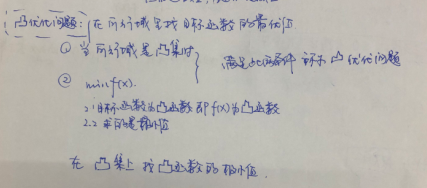 凸优化问题:在可行域里找目标函数的最优值
① 当可行域是凸集时
满足此两条件 称为 凸优化问题
② min f(x).
2.1 目标函数为凸函数 即f(x)为凸函数
2.2 求的是极小值
在 凸集上 找凸函数的极小值.